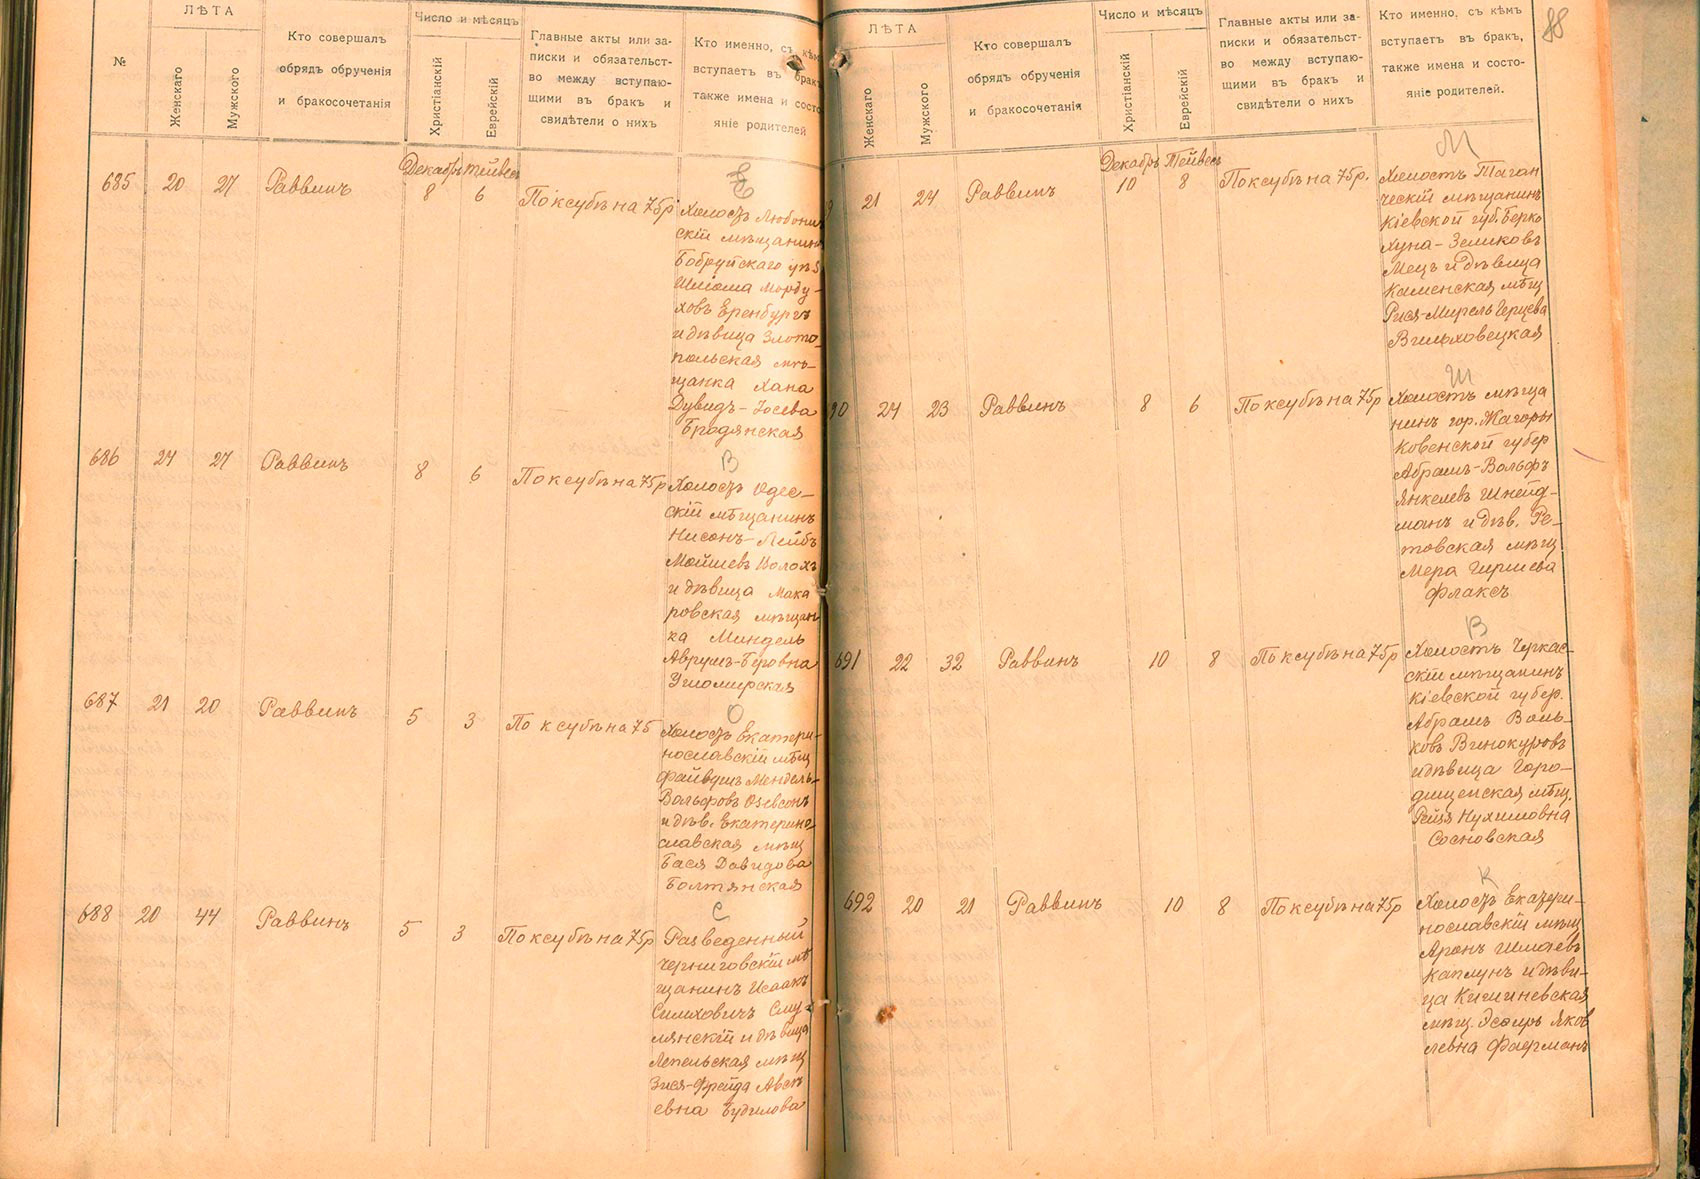 №
ЛѢТА
Женскаго
Мужского
Кто совершалъ
обрядъ обрученія
и бракосочетанія
Число и мѣсяцъ
Христіанскій
Еврейскій
Главные акты или за-
писки и обязательст-
во между вступаю-
щими въ бракъ и
свидѣтели о нихъ
Кто именно, съ кѣмъ
вступаетъ въ бракъ
также имена и состо-
яніе родителей
685 20 27 Раввинъ Декабрь 8 Тейвесъ 6 По ксубѣ на 75р
Холостъ Любонич
скій мѣщанинъ
Бобруйскаго уѣз
Шлиома Морду-
ховъ Еренбургъ
и дѣвица Злото-
польская мѣ-
щанка Хана
Дувидъ-Іосева
Бродянская
686 24 27 Раввинъ 8 6 По ксубѣ на 75р
В
Холостъ Одес-
скій мѣщанинъ
Нисонъ-Лейбъ
Мойшевъ Волохъ
и дѣвица Мака
ровская мѣщан
ка Миндель
Аврумъ-Беровна
687 21 20 Раввинъ 5 3 По ксубѣ на 75
О
Холостъ Екатери-
нославскій мѣщ
Файвушъ Мендель-
Вольфовъ
и дѣв. Екатерино-
славская мѣщ
Бася Давидова
Болтянская
688 20 44 Раввинъ 5 3 По ксубѣ на 75р
С
Разведенный
Черниговскій мѣ
щанинъ Исаакъ
Симховичъ Сму
лянскій и дѣвица
Лепельская мѣщ
Зися-Фрейда
евна Будилова
88
ЛѢТА
Женскаго
Мужского
Кто совершалъ
обрядъ обрученія
и бракосочетанія
Число и мѣсяцъ
Христіанскій
Еврейскій
Главные акты или за-
писки и обязательст-
во между вступаю-
щими въ бракъ и
свидѣтели о нихъ
Кто именно, съ кѣмъ
вступаетъ въ бракъ,
также имена и состо-
яніе родителей.
9 21 24 Раввинъ Декабрь 10 Тейвесъ 8 По ксубѣ на 75р.
М
Холостъ Таган
ческій мѣщанинъ
Кіевской губ. Берко
Хуна-Зеликовъ
Мецъ и дѣвица
Каменская мѣщ
Рися-Мирель Герцева
Вильховецкая
90 24 23 Раввинъ 8 6 По ксубѣ на 75р
Ш
Холостъ мѣща
нинъ гор. Жагоры
Ковенской губер
Абрамъ-Вольфъ
Янкелевъ Шнейд-
манъ и дѣв. Ре-
товская мѣщ
Мера Гиршева
Флаксъ
691 22 32 Раввинъ 10 8 По ксубѣ на 75р
В
Холостъ Черкас-
скій мѣщанинъ
Кіевской губер.
Абрамъ Воль-
ковъ Винокуровъ
и дѣвица Горо-
дищенская мѣщ.
Рейзя Нухимовна
Сосновская
692 20 21 Раввинъ 10 8 По ксубѣ на 75р
К
Холостъ Екатери-
нославскій мѣщ
Аронъ Шмаевъ
Каплунъ и дѣви-
ца Кишиневская
мѣщ. Эсѳирь Яков
левна Фаерманъ